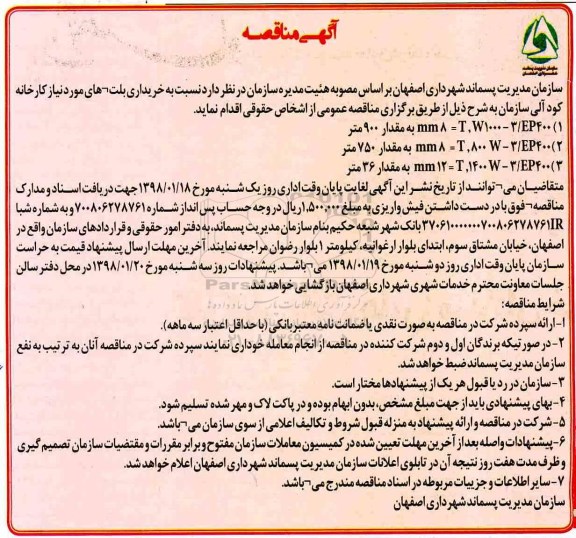 آگهی مناقصه
سازمان مدیریت پسماند شهرداری اصفهان بر اساس مصوبه هئیت مدیره سازمان در نظر دارد نسبت به خریداری بلت¬های مورد نیاز کارخانه
کود آلی سازمان به شرح ذیل از طریق برگزاری مناقصه عمومی از اشخاص حقوقی اقدام نماید.
۱) T, W۱۰۰۰ - ۳/EP۴۰۰ = ۸ mm به مقدار ۹۰۰ متر
۲) T, ۸۰۰ W - ۳/EP۴۰۰ = ۸ mm به مقدار ۷۵۰ متر
۳) T, ۱۴۰۰ W - ۳/EP۴۰۰ = ۱۲ mm به مقدار ۳۶ متر
متقاضیان می¬توانند از تاریخ نشر این آگهی لغایت پایان وقت اداری روز یک شنبه مورخ ۱۳۹۸/۰۱/۱۸ جهت دریافت اسناد و مدارک
مناقصه¬فوق با در دست داشتن فیش واریزی به مبلغ ۱,۵۰۰,۰۰۰ ریال در وجه حساب پس انداز شماره ۷۰۰۸۰۶۲۷۸۷۶۱ و به شماره شبا
IR۳۷۰۶۱۰۰۰۰۰۰۰۷۰۰۸۰۶۲۷۸۷۶۱ بانک شهر شعبه حکیم بنام سازمان مدیریت پسماند، به دفتر امور حقوقی و قراردادهای سازمان واقع در
اصفهان، خیابان مشتاق سوم، ابتدای بلوار ارغوانیه، کیلومتر ۱ بلوار رضوان مراجعه نمایند. آخرین مهلت ارسال پیشنهاد قیمت به حراست
سازمان پایان وقت اداری روز دو شنبه مورخ ۱۳۹۸/۰۱/۱۹ می¬باشد. پیشنهادات روز سه شنبه مورخ ۱۳۹۸/۰۱/۲۰ در محل دفتر سالن
جلسات معاونت محترم خدمات شهری شهرداری اصفهان بازگشایی خواهد شد.
شرایط مناقصه:
۱- ارائه سپرده شرکت در مناقصه به صورت نقدی یا ضمانت نامه معتبر بانکی (با حداقل اعتبار سه ماهه).
۲- در صورتیکه برندگان اول و دوم شرکت کننده در مناقصه از انجام معامله خودداری نمایند سپرده شرکت در مناقصه آنان به ترتیب به نفع
سازمان مدیریت پسماند ضبط خواهد شد.
۳- سازمان در رد یا قبول هر یک از پیشنهادها مختار است.
۴- بهای پیشنهادی باید از جهت مبلغ مشخص، بدون ابهام بوده و در پاکت لاک و مهر شده تسلیم شود.
۵- شرکت در مناقصه و ارائه پیشنهاد به منزله قبول شروط و تکالیف اعلامی از سوی سازمان می¬باشد.
۶- پیشنهادات واصله بعد از آخرین مهلت تعیین شده در کمیسیون معاملات سازمان مفتوح و برابر مقررات و مقتضیات سازمان تصمیم گیری
و ظرف مدت هفت روز نتیجه آن در تابلوی اعلانات سازمان مدیریت پسماند شهرداری اصفهان اعلام خواهد شد.
۷- سایر اطلاعات و جزییات مربوطه در اسناد مناقصه مندرج می¬باشد.
سازمان مدیریت پسماند شهرداری اصفهان